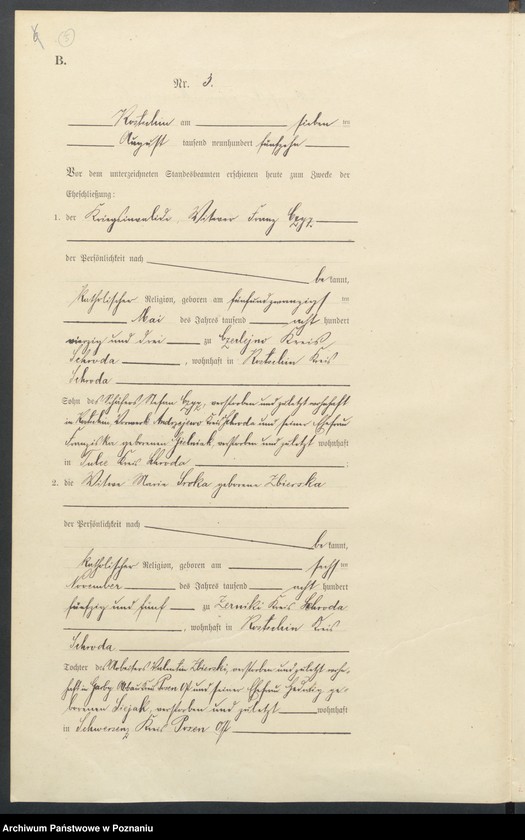 5
B.
Nr. 3.
am sieben ten
August tausend neunhundert fünfzehn
Vor dem unterzeichneten Standesbeamten erschienen heute zum Zwecke der
Eheschließung:
1. der Kriegsinvalide, Witwer Franz
der Persönlichkeit nach
be kannt,
katholischer Religion, geboren am fünfundzwanzigsten
Mai des Jahres tausend acht hundert
vierzig und drei zu Czerlejno Kreis
Schroda, wohnhaft in Kreis
Schroda
Sohn des Schäfers Stefan verstorben und zuletzt wohnhaft
in Vorwerk Kreis Schroda und seiner Ehefrau
Franziska geborenen verstorben und zuletzt wohnhaft
in Tulce Kreis Schroda
2. die Witwe Marie Sroka geborene Zbierska
der Persönlichkeit nach
be kannt,
katholischer Religion, geboren am sechs ten
November des Jahres tausend acht hundert
fünfzig und fünf zu Zerniki Kreis Schroda
, wohnhaft in Kreis
Schroda
Tochter des Valentin Zbierski, verstorben und zuletzt wohn-
haft in Garby Posen Ost und seiner Ehefrau Hedwig ge-
borenen verstorben und zuletzt wohnhaft
in Schwersenz Kreis Posen Ost
Archiwum Państwowe w Poznaniu